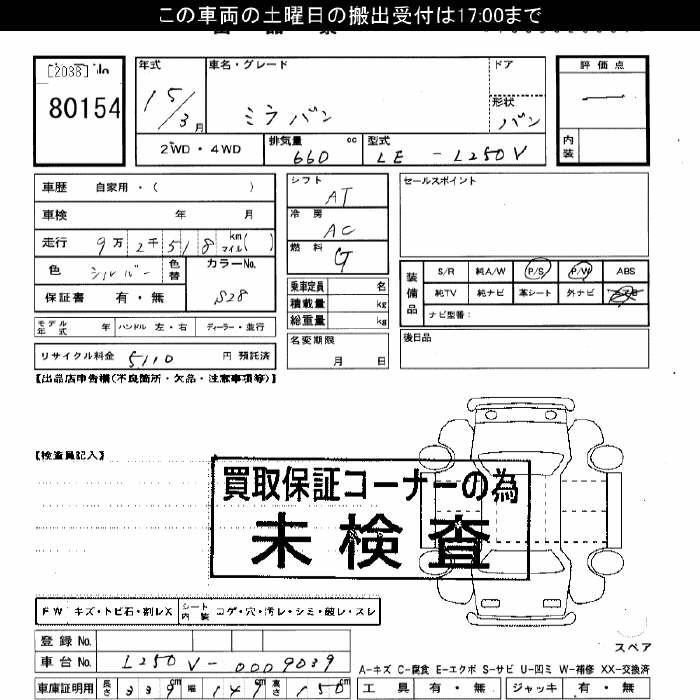 この車両の土曜日の搬出受付は17:00まで
[2038] No
80154
年式
15/3月
車名・グレード
ミラバン
ドア
形状
バン
評価点
—
内装
2WD・4WD
排気量 cc
660
型式
LE - L250V
車歴 自家用・( )
車検 年 月
走行 9万2千518 km マイル( )
色 シルバー 色替
カラーNo.
S28
保証書 有・無
モデル年式 年 ハンドル 左・右 ディーラー・並行
リサイクル料金 5110 円 預託済
シフト
AT
冷房
AC
燃料
G
乗車定員 名
積載量 kg
総重量 kg
名変期限
月 日
セールスポイント
装備品
S/R 純A/W P/S P/W ABS
純TV 純ナビ 革シート 外ナビ
ナビ型番:
後日品
【出品店申告欄(不良箇所・欠品・注意事項等)】
【検査員記入】
買取保証コーナーの為
未検査
FW キズ・トビ石・割レX
シート内装 コゲ・穴・汚レ・シミ・破レ・スレ
スペア
登録No.
車台No. L250V-0009039
車庫証明用 長さ 339cm 幅 149cm 高さ 150cm
A-キズ C-腐食 E-エクボ S-サビ U-凹ミ W-補修 XX-交換済
工具 有・無 ジャッキ 有・無